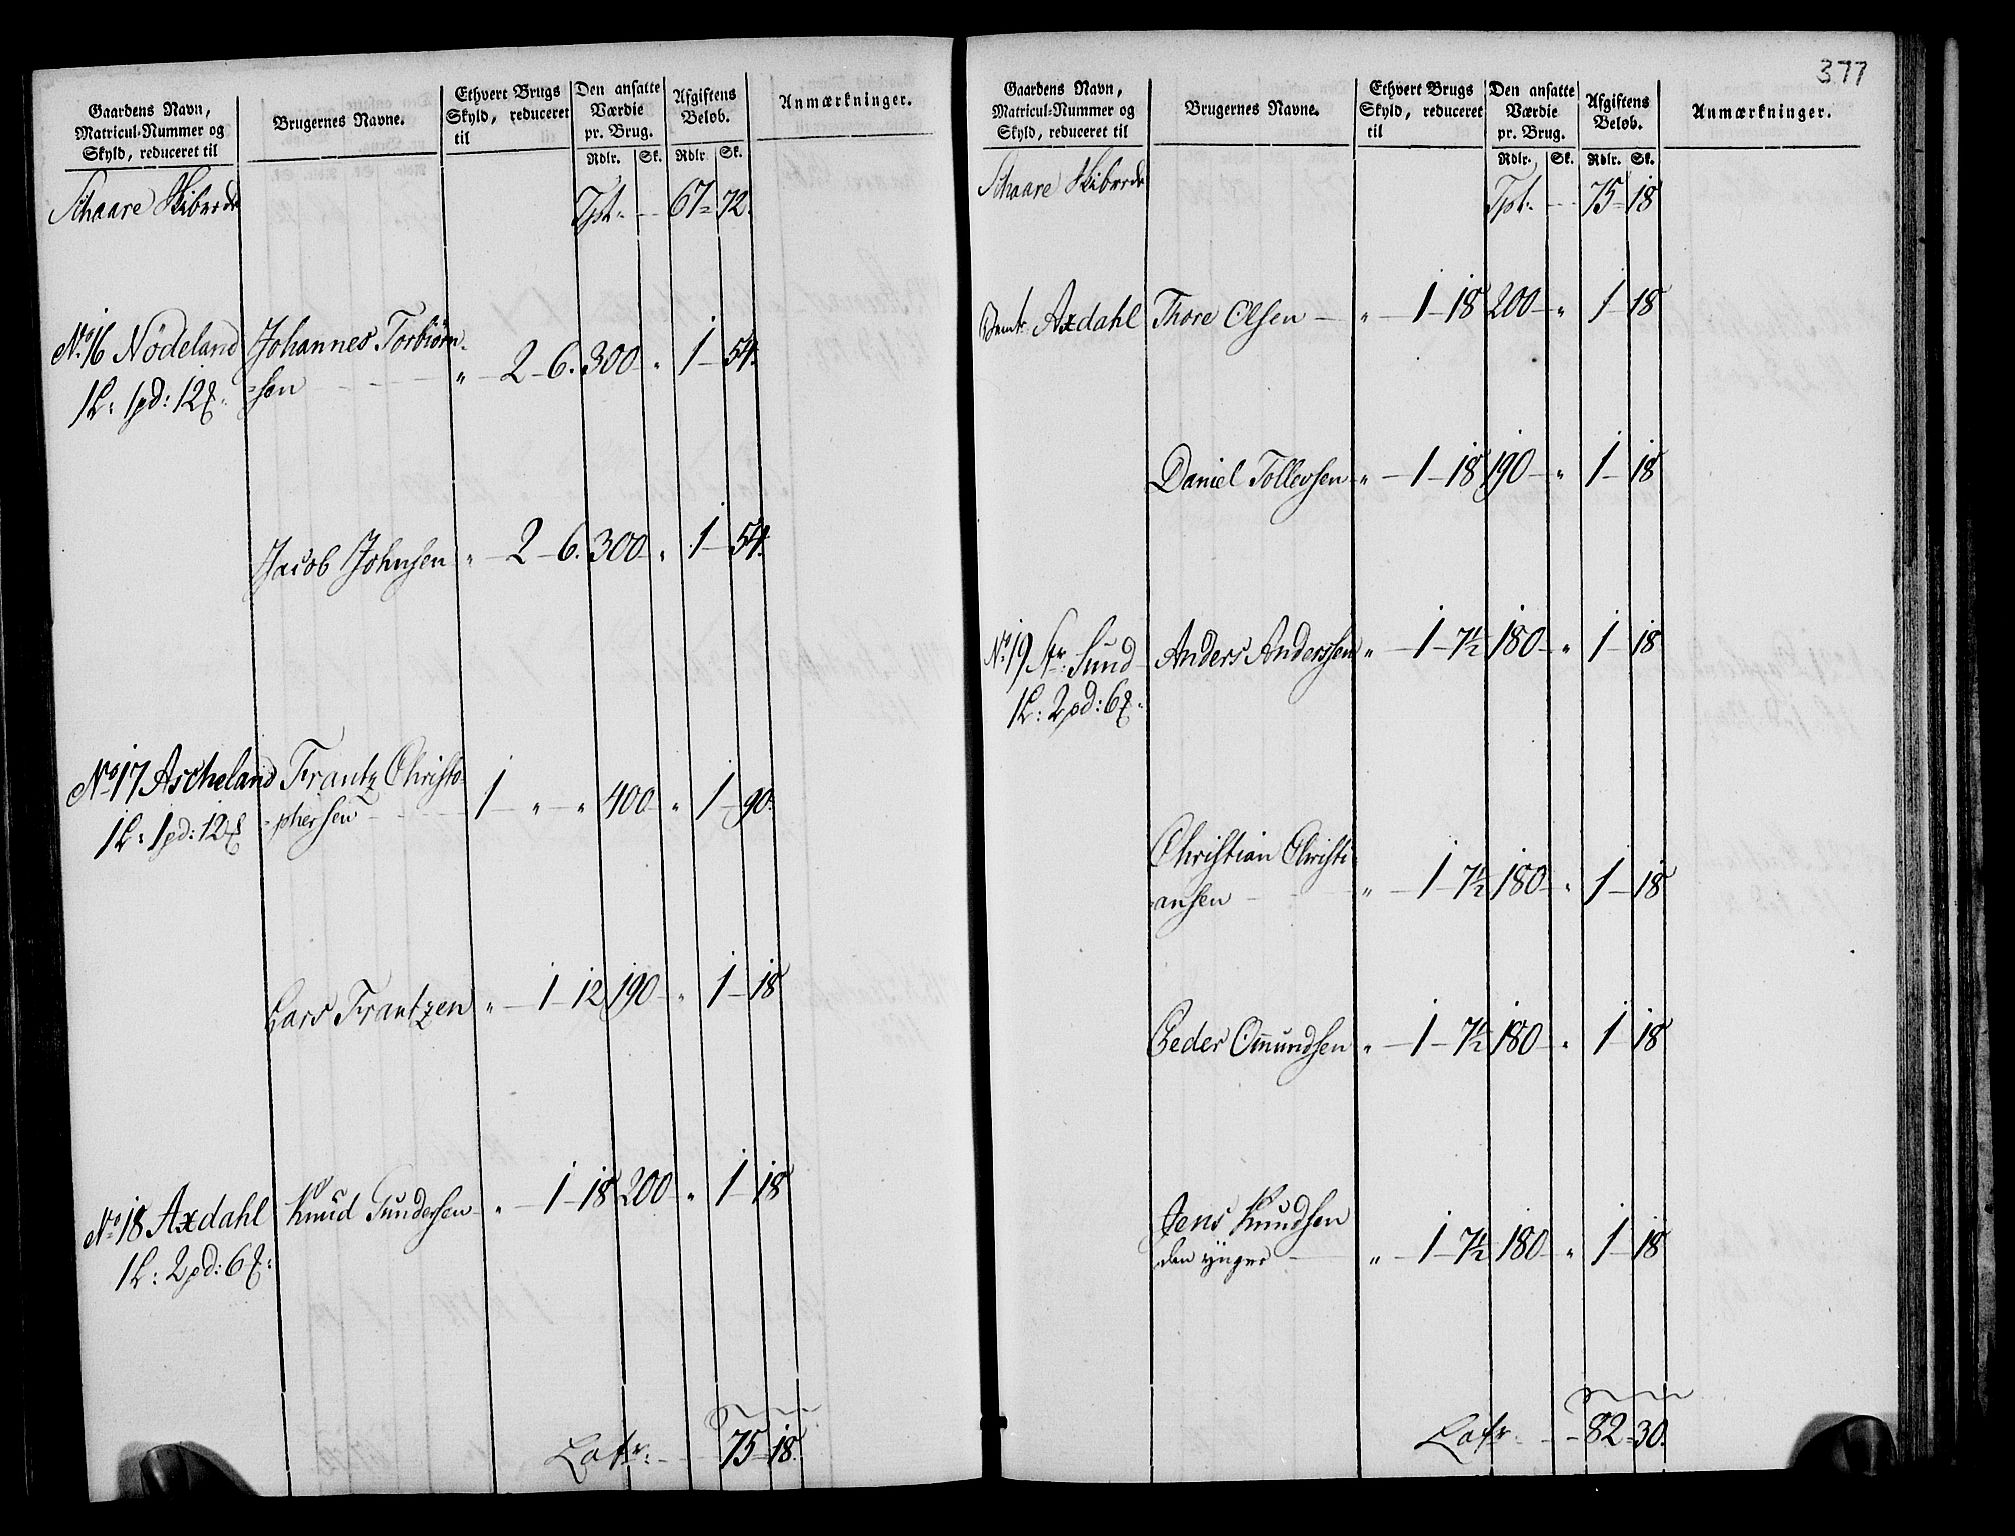 Gaardens Navn,
Matricul-Nummer og
Skyld, reduceret til
Brugernes Navne.
Ethvert Brugs
Skyld, reduceret
til
Den ansatte
Værdie
pr. Brug.
Rdlr. Sk.
Afgiftens
Beløb.
Rdlr. Sk.
Anmærkninger.
Schaare Skibrede Tpt. 67 72.
No 16 Nödeland Johannes Torbiørn-
1 L: 1 pd: 12 -sen " 2 6. 300 " 1 54.
Jacob Johnsen " 2 6. 300 " 1 54.
No 17 Ascheland Frantz Christo-
1 L: 1 pd: 12 -phersen 1 " " 400 " 1 90.
Lars Frantzen " 1 12 190 " 1 18
No 18 Axdahl Knud Gundersen " 1 18 200 " 1 18
1 L: 2 pd: 6
Latr. 75 18.
377
Gaardens Navn,
Matricul-Nummer og
Skyld, reduceret til
Brugernes Navne.
Ethvert Brugs
Skyld, reduceret
til
Den ansatte
Værdie
pr. Brug.
Rdlr. Sk.
Afgiftens
Beløb.
Rdlr. Sk.
Anmærkninger.
Schaare Skibrede Tpt. 75 18
Axdahl Thore Olsen " 1 18 200 " 1 18
Daniel Tollevsen " 1 18 190 " 1 18
No 19 Str. Sund Anders Anderssen " 1 7½ 180 " 1 18
1 L: 2 pd: 6
Christian Christi
-ansen " 1 7½ 180 " 1 18
Peder Omundsen " 1 7½ 180 " 1 18
Jens Knudsen
den yngre " 1 7½ 180 " 1 18
Latr. 82 30.